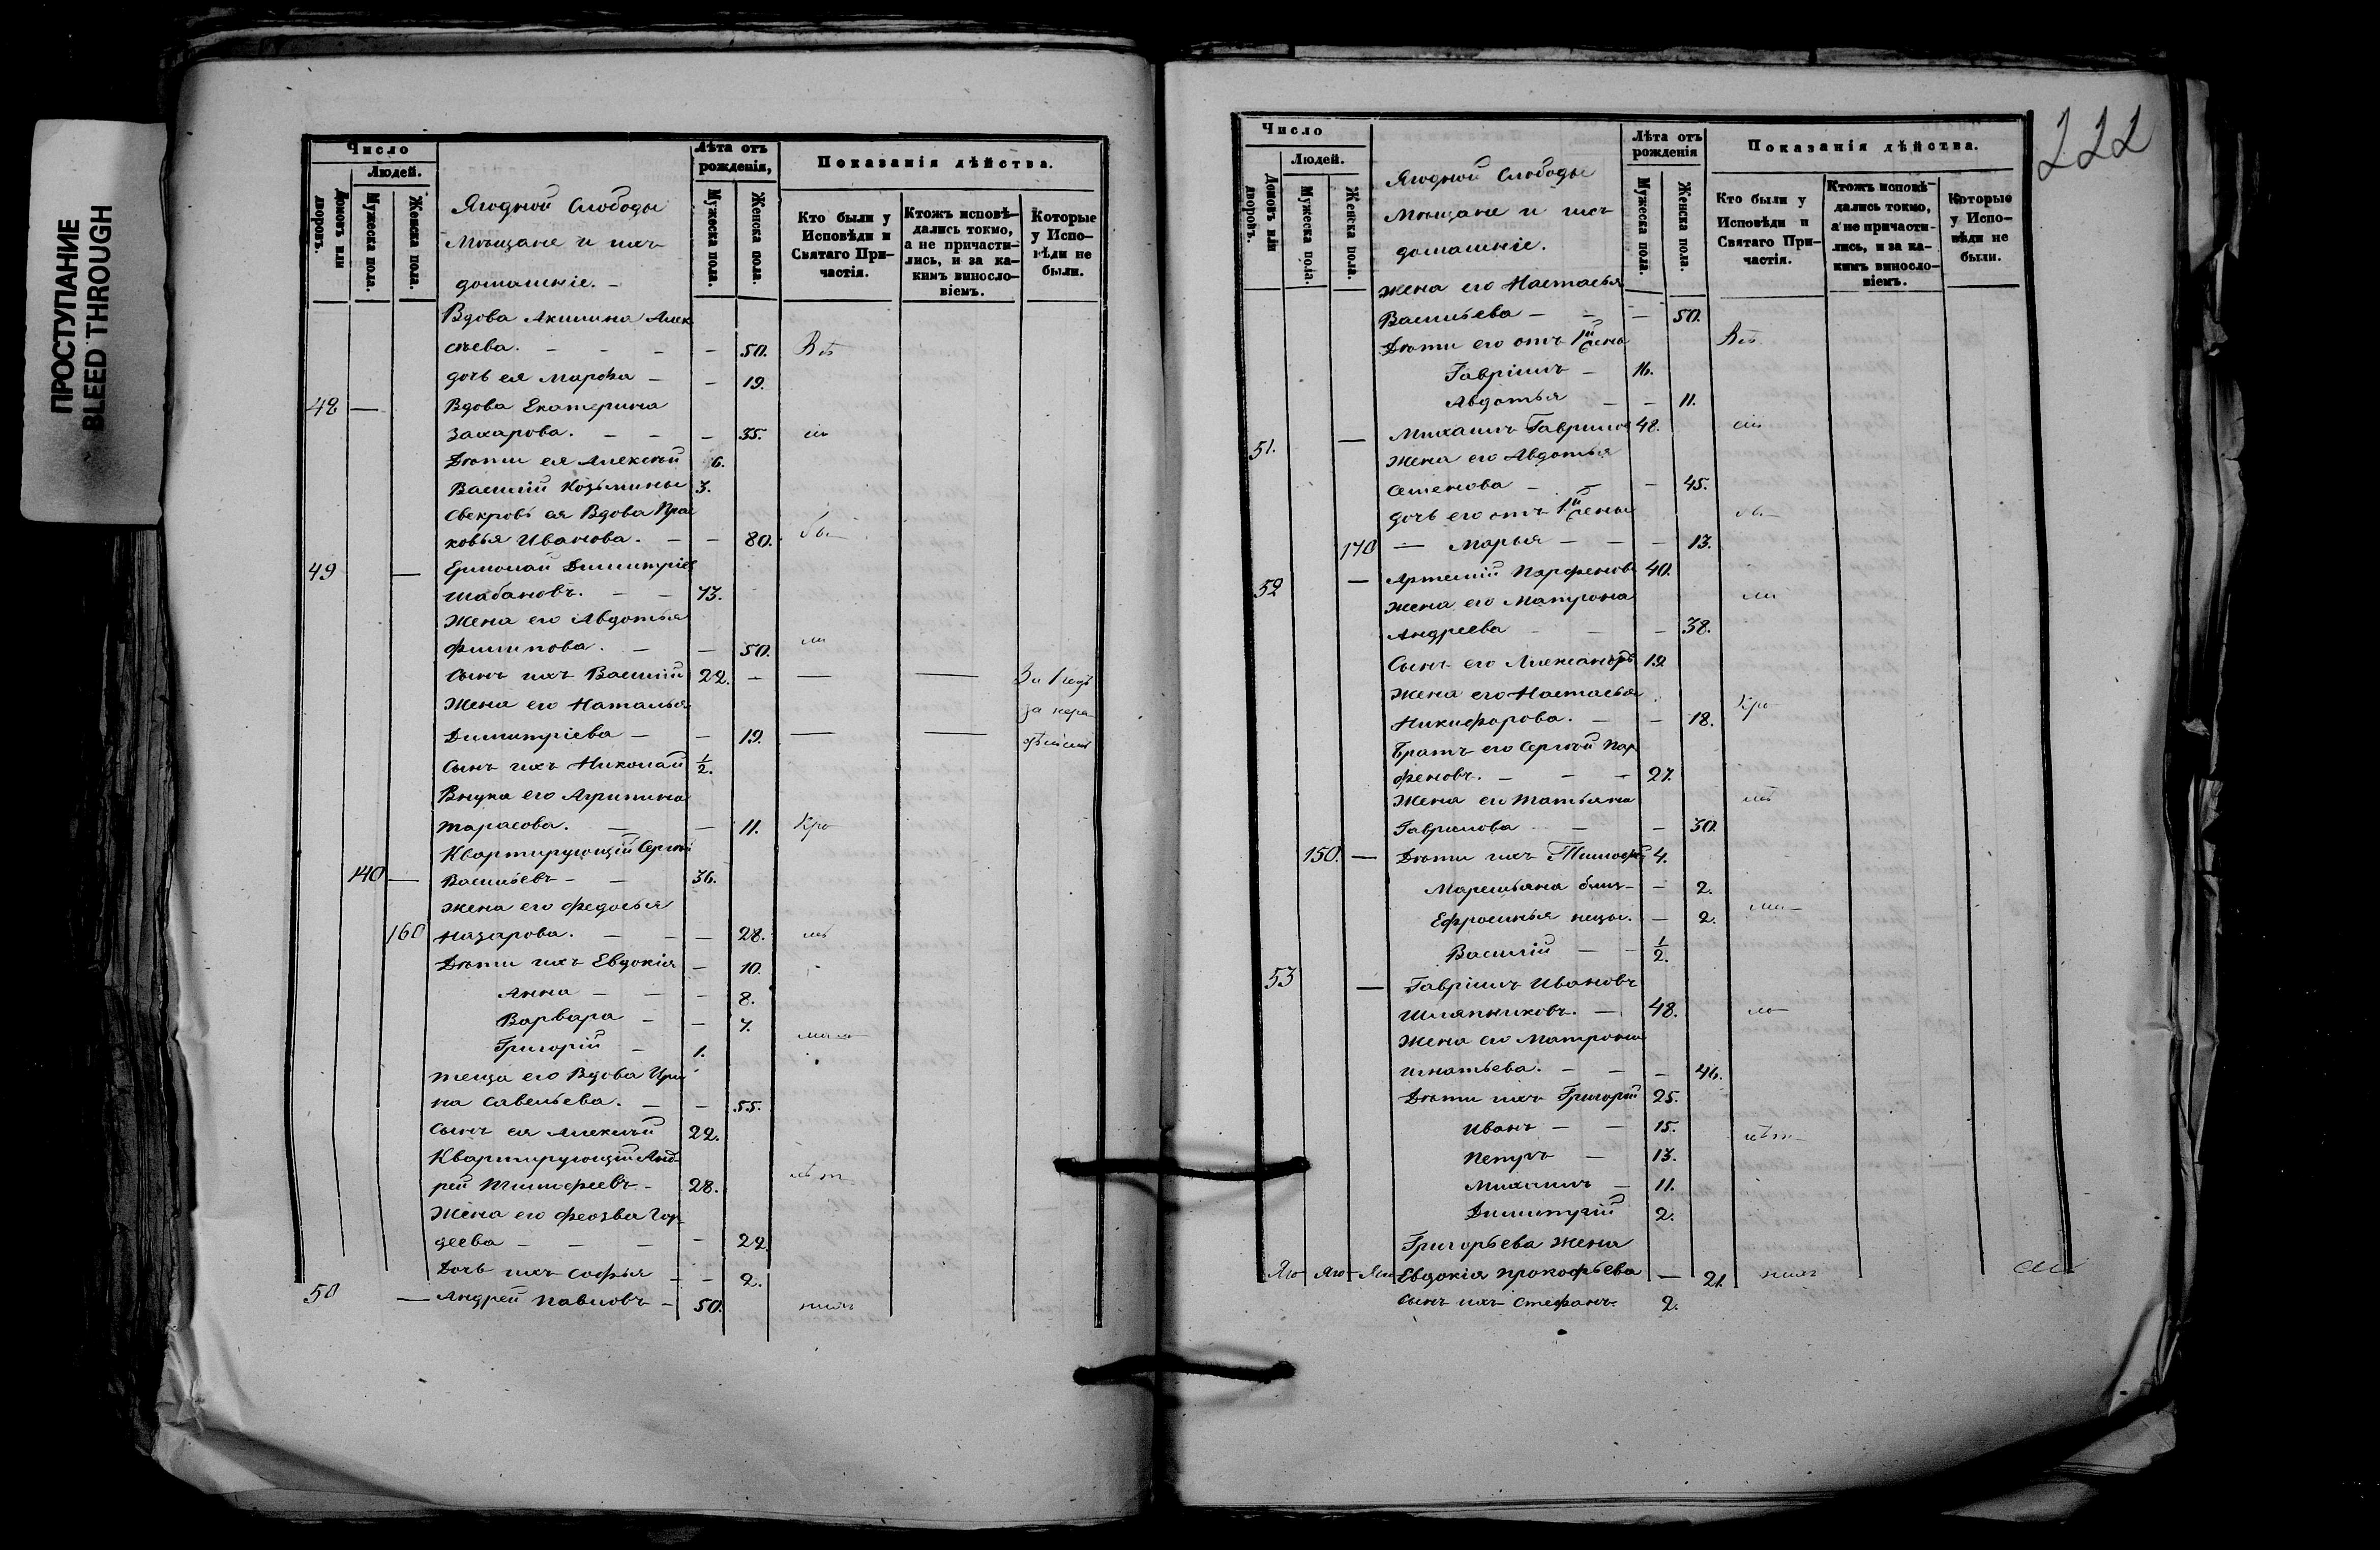 ПРОСТУПАНИЕ
BLEED THROUGH
Число
Людей.
Домовъ или дворовъ.
Мужеска пола.
Женска пола.
Ягодной Слободы
Мѣщане и ихъ
домашніе. -
Лѣта отъ рожденія,
Мужеска пола.
Женска пола.
Показанія дѣйства.
Кто были у Исповѣди и Святаго Причастія.
Ктожъ исповѣдались токмо, а не причастились, и за какимъ винословіемъ.
Которые у Исповѣди не были.
Вдова Акилина Алек
сѣева. - - - - 50. Въ
дочь ея Марѳа - - 19.
48 — Вдова Екатерина
Захарова. - - - 35.
Дѣти ея Алексѣй 6.
Василій Козьмины 3.
Свекровь ея Вдова Прас
ковья Иванова. - - 80.
49 — Ермолай Димитріев
Шабановъ. - - 73.
Жена его Авдотья
Филипова. - - 50.
Сынъ ихъ Василій 22. - — —
Жена его Наталья
Димитріева - - 19. — —
Сынъ ихъ Николай 1/2.
Внука его Агрипина
Тарасова. — - 11. Кро
Квартирующій Сергѣй
140 — Васильевъ - - 36.
Жена его Федосья
160 Назарова. - - - 28.
Дѣти ихъ Евдокія - 10.
Анна - - - 8.
Варвара - - 7.
Григорій - 1.
теща его Вдова Ири
на Савельева. - - 55.
Сынъ ея Алексѣй 22.
Квартирующій Анд-
рей Тимофеевъ - 28.
Жена его Феозва Гор-
деева - - - - 22.
Дочь ихъ Софья - - 2.
50 — Андрей Павловъ - 50.
222
Число
Людей.
Домовъ или дворовъ.
Мужеска пола.
Женска пола.
Ягодной Слободы
Мѣщане и ихъ
домашніе.
Лѣта отъ рожденія
Мужеска пола.
Женска пола.
Показанія дѣйства.
Кто были у Исповѣди и Святаго Причастія.
Ктожъ исповѣдались токмо, а не причастились, и за какимъ винословіемъ.
Которые у Исповѣди не были.
Жена его Настасья
Васильева - - - 50.
Дѣти его отъ 1й жены Въ
Гавріилъ - 16.
Авдотья - - 11.
51. — Михаилъ Гаврилов 48.
Жена его Авдотья
Семенова - - - 45.
дочь его отъ 1й жены
170 — Марья - - - 13.
52 — Артемій Парфеновъ 40.
Жена его Матрона
Андреева - - - 38.
Сынъ его Александръ 19
Жена его Настасья
Никифорова. - - 18. Кро
Братъ его Сергѣй Пар
феновъ. - - - 27.
Жена его Татьяна
Гаврилова - - - 30.
150. — Дѣти ихъ Тимофей 4.
Маремьяна близ- - 2.
Ефросинья нецы. - 2.
Василій - - 1/2.
53 — Гавріилъ Ивановъ
Шляпниковъ. - 48.
Жена его Матрона
Игнатьева. - - - 46.
Дѣти ихъ Григорій 25.
Иванъ - - 15.
Петръ - 13.
Михаилъ - 11.
Димитрій 2.
Григорьева жена
Евдокія Прокофьева — 21.
Сынъ ихъ Стефанъ 2.